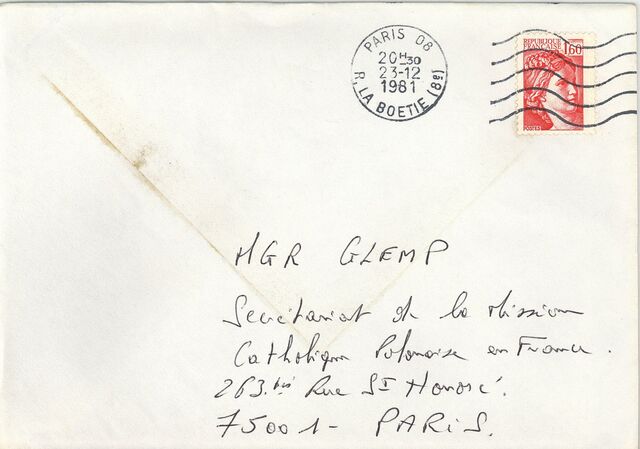 PARIS 08
20H30
23-12
1981
R. LA BOETIE (8e)
REPUBLIQUE
FRANCAISE 1,60
POSTES
MGR GLEMP
Secrétariat de la Mission
Catholique Polonaise en France.
263.bis Rue St Honoré.
75001- PARIS.